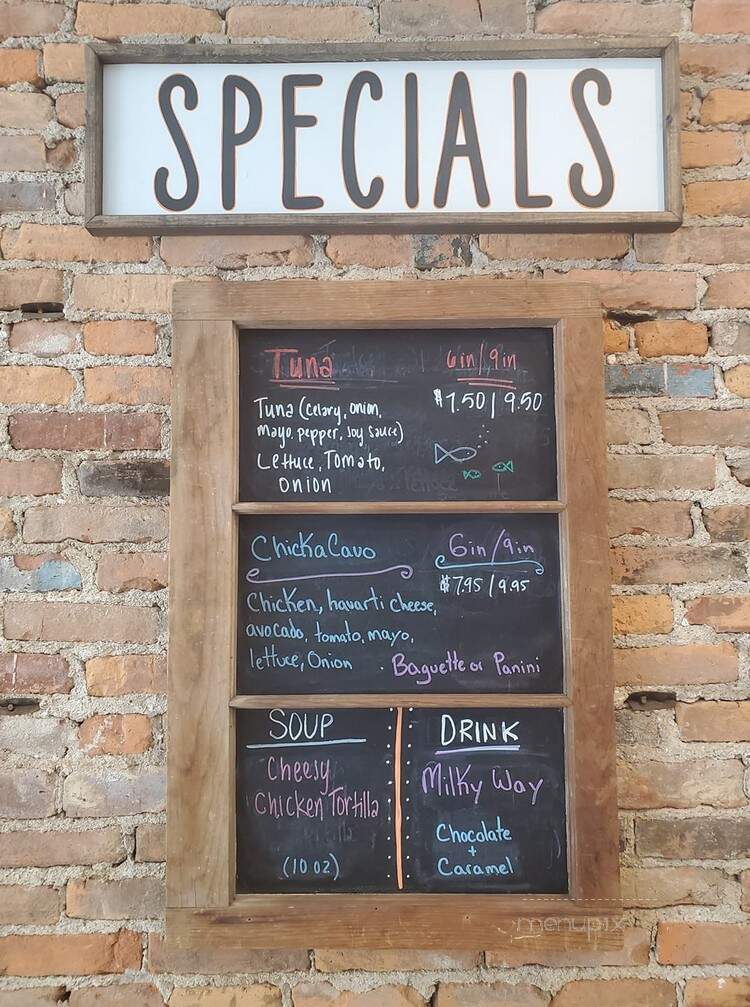 SPECIALS
Tuna
6in/9in
Tuna (celary, onion,
mayo, pepper, soy sauce)
Lettuce, Tomato,
onion
$7.50 | 9.50
ChickaCavo
6in/9in
$7.95 / 9.95
Chicken, havarti cheese,
avocado, tomato, mayo,
lettuce, Onion
. Baguette or Panini
SOUP
Cheesy
Chicken Tortilla
(10 oz)
DRINK
Milky Way
Chocolate
+
Caramel
menupix